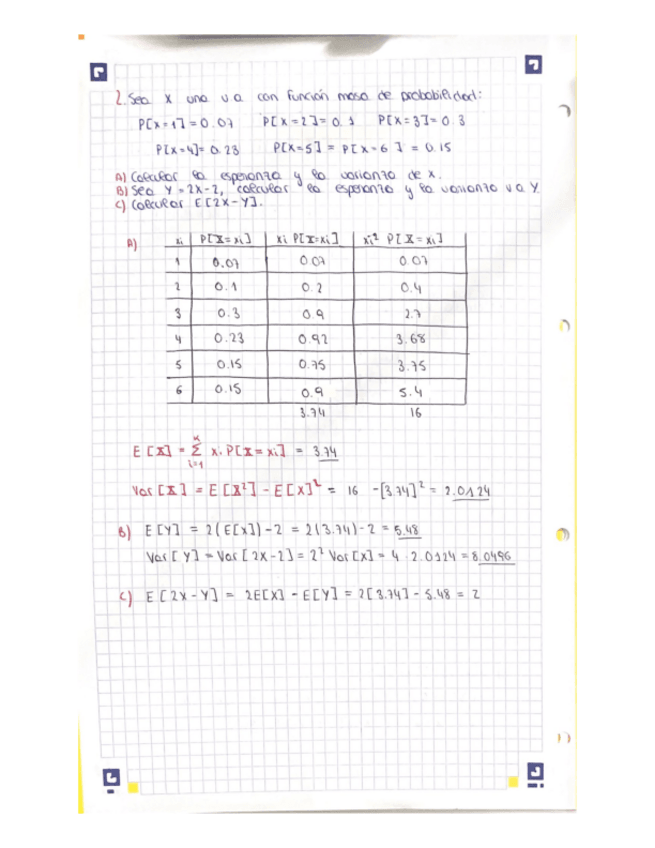 2. Sea X una va con función masa de probabilidad:
P[X=1]=0.07 P[X=2]=0.1 P[X=3]=0.3
P[X=4]=0.23 P[X=5] = P[X=6] = 0.15
A) Calcular la esperanza y la varianza de X.
B) Sea Y=2X-2, calcular la esperanza y la varianza va Y.
C) Calcular E[2X-Y].
A) xi P[X=xi] xi P[X=xi] xi² P[X=xi]
1 0.07 0.07 0.07
2 0.1 0.2 0.4
3 0.3 0.9 2.7
4 0.23 0.92 3.68
5 0.15 0.75 3.75
6 0.15 0.9 5.4
3.74 16
E[X] = Σ_{i=1}^{K} xi P[X=xi] = 3.74
Var[X] = E[X²] - E[X]² = 16 - [3.74]² = 2.0124
B) E[Y] = 2(E[X]) - 2 = 2(3.74) - 2 = 5.48
Var[Y] = Var[2X-2] = 2² Var[X] = 4 · 2.0124 = 8.0496
C) E[2X-Y] = 2E[X] - E[Y] = 2[3.74] - 5.48 = 2